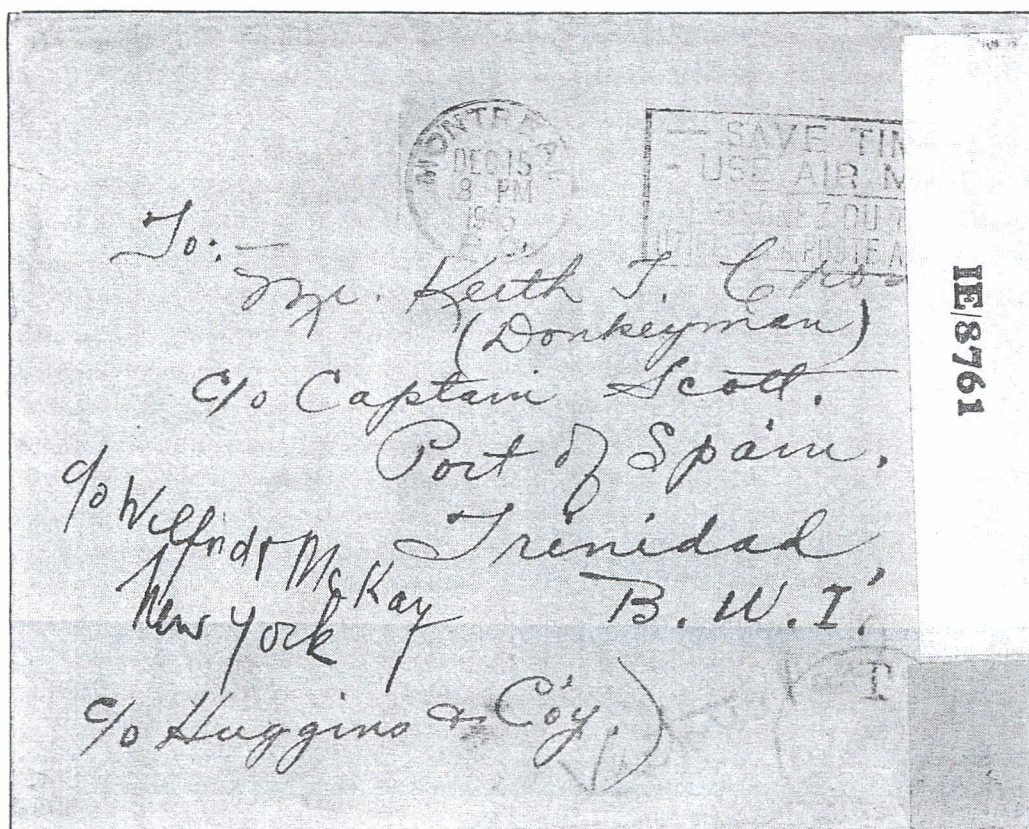 MONTREAL
DEC 15
8 PM
P.Q.
— SAVE TIM
- USE AIR M
To:- Mr. Keith T.
(Donkeyman)
c/o Captain Scott.
Port of Spain.
Trinidad
B. W. I.
c/o Wilfrid McKay
New York
c/o Huggins & Co'y.
T
IE/8761